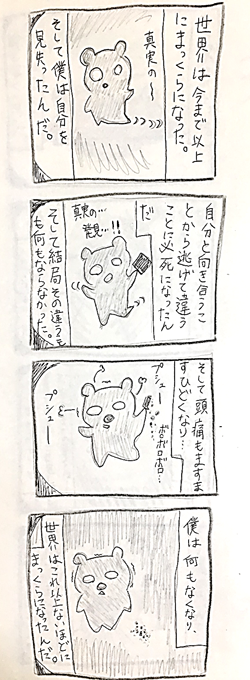 世界は今まで以上
にまっくらになった。
真実の〜
そして僕は自分を
見失ったんだ。
自分と向き合うこ
とから逃げて違う
ことに必死になったん
だ
!!
真実の…
発見…
そして結局その違うも
も何もならなかった。
そして頭痛もますま
すひどくなり…
プシュー
ボロボロボロ…
プシュー
僕は何もなくなり、
世界はこれ以上ないほどに
まっくらになったんだ。